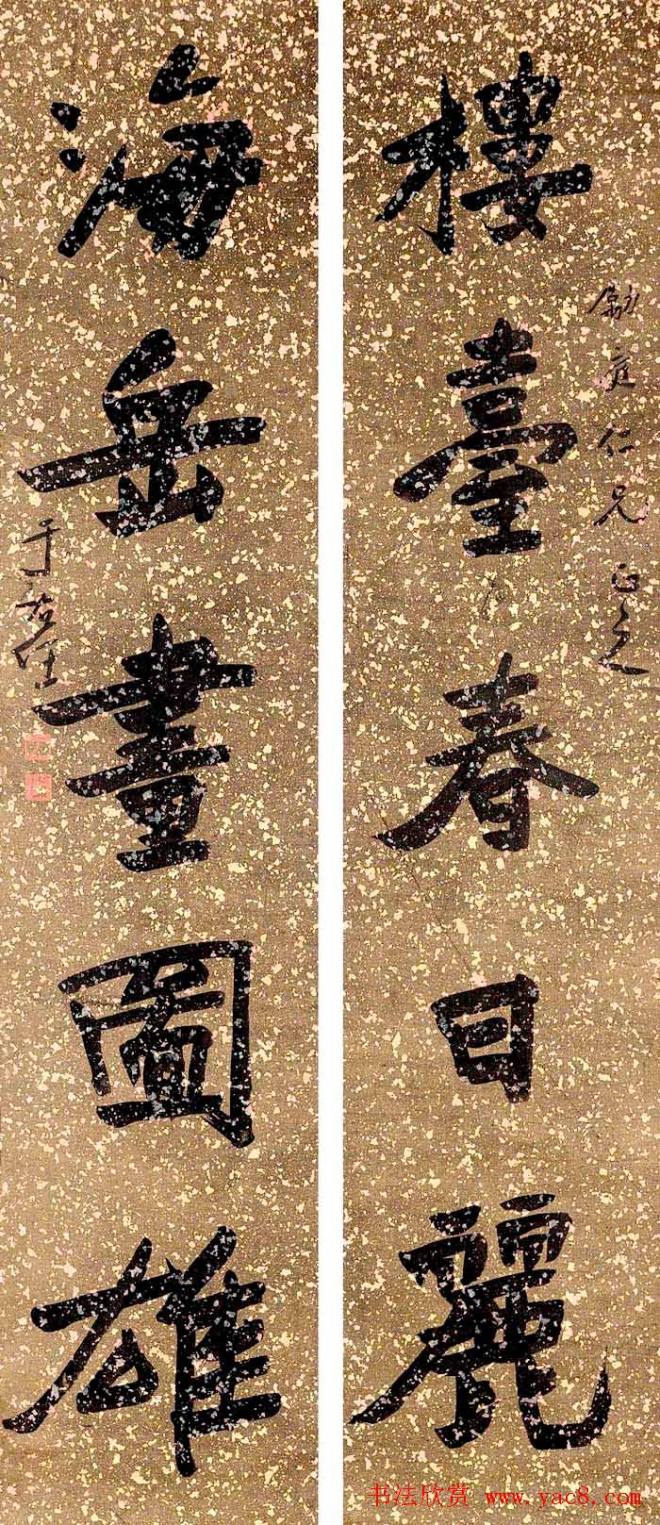 樓臺春日麗
勵庭仁兄正之
海岳畫圖雄
于右任
书法欣赏 www.yac8.com